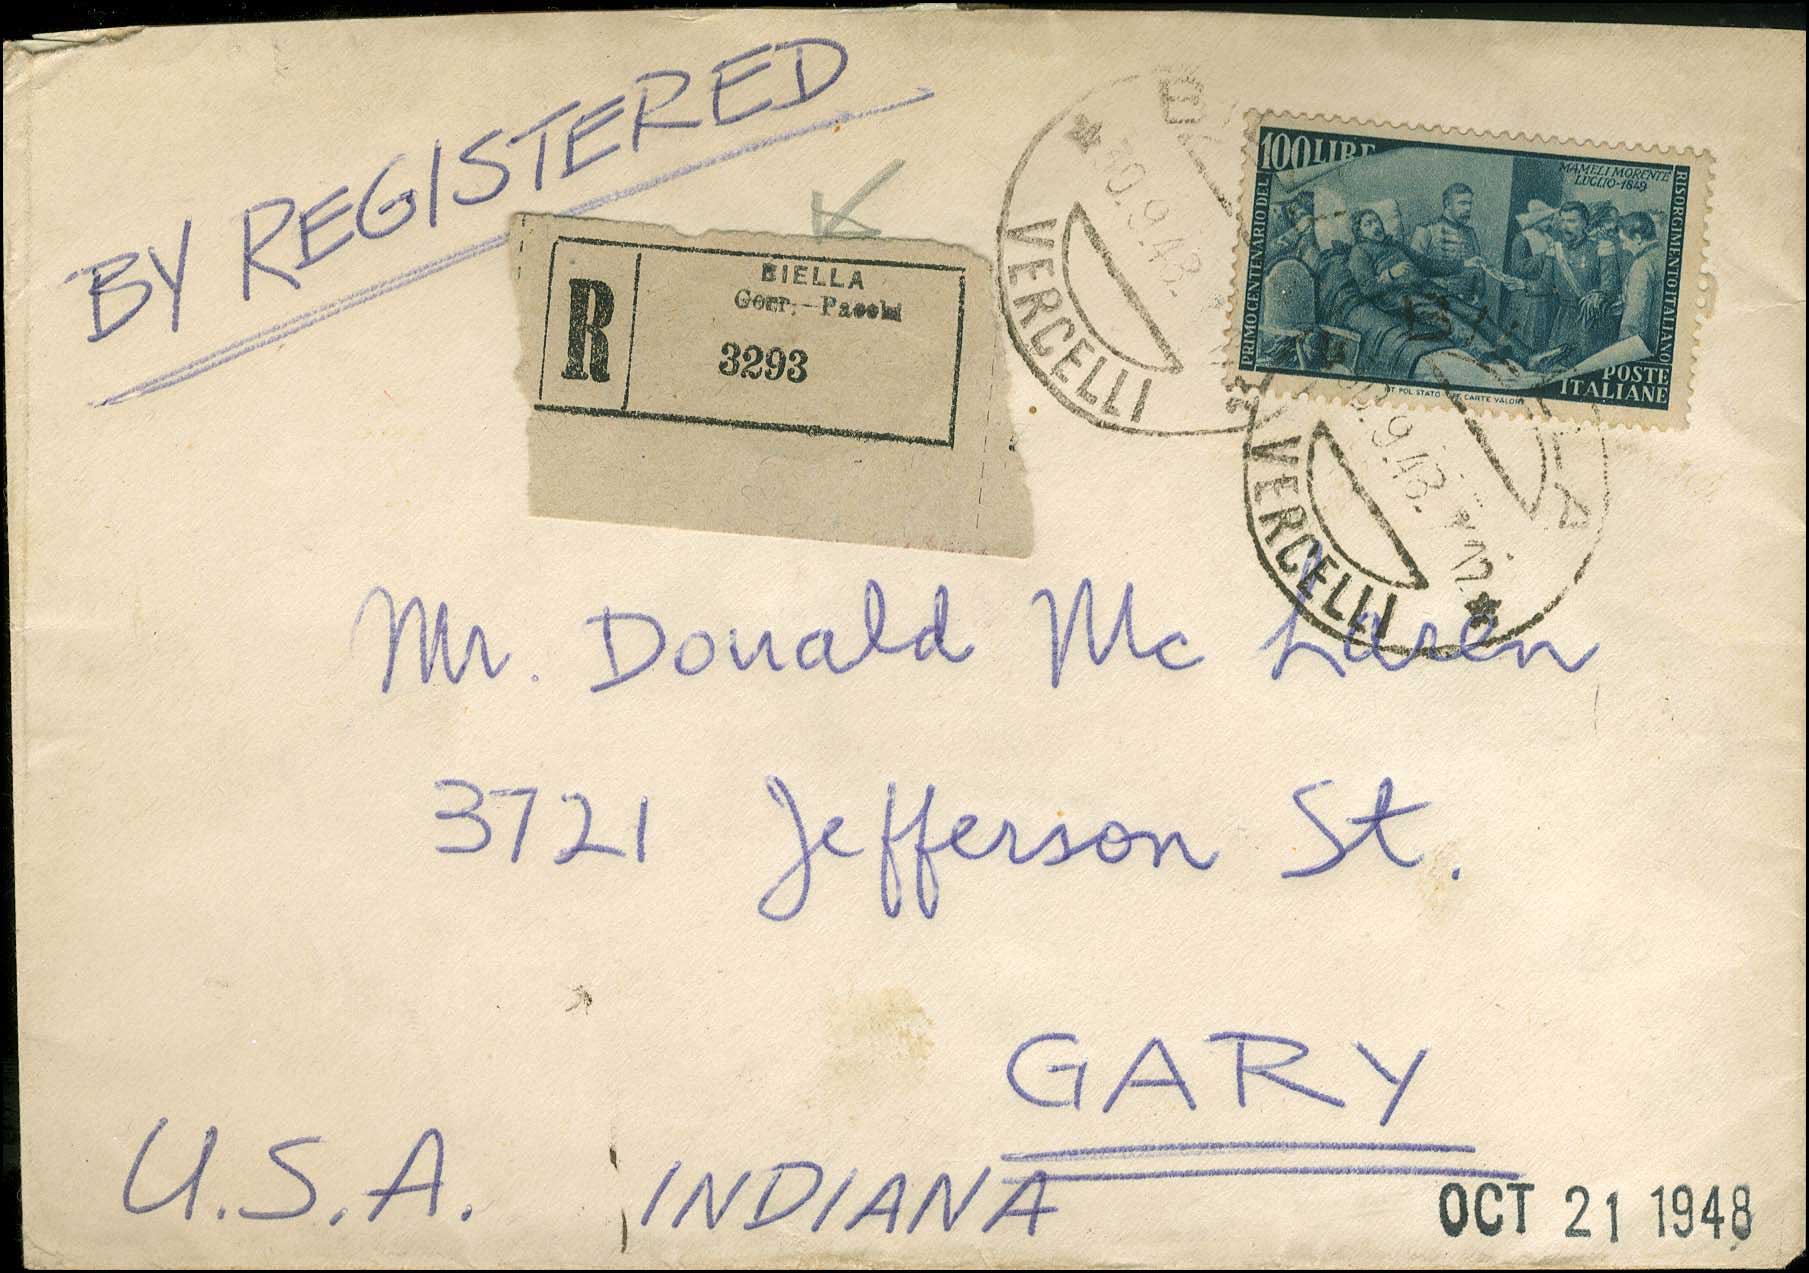 BY REGISTERED
R
BIELLA
Corr.-Pacchi
3293
30.9.48.
VERCELLI
100 LIRE
MAMELI MORENTE
LUGLIO-1849
PRIMO CENTENARIO DEL
RISORGIMENTO ITALIANO
POSTE
ITALIANE
IST. POL. STATO OFF. CARTE VALORI
9.48.
VERCELLI
Mr. Donald Mc Laren
3721 Jefferson St.
GARY
U.S.A. INDIANA
OCT 21 1948